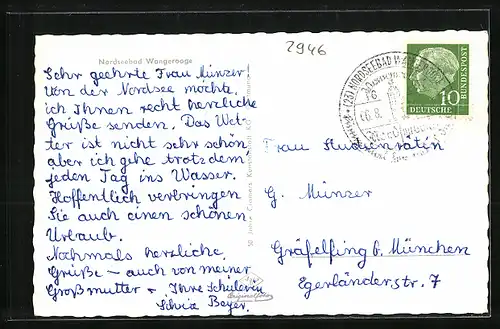 2946
Nordseebad Wangerooge
Sehr geehrte Frau Münzer
von der Nordsee möchte
ich Ihnen recht herzliche
Grüße senden. Das Wet-
ter ist nicht sehr schön,
aber ich gehe trotzdem
jeden Tag ins Wasser.
Hoffentlich verbringen
Sie auch einen schönen
Urlaub.
Nochmals herzliche
Grüße – auch von meiner
Großmutter + Ihre Schülerin
Beyer.
50 Jahre Cramers Kunstanstalt KG
(23) NORDSEEBAD
16.8.
10
DEUTSCHE
BUNDESPOST
Frau Studienrätin
G. Münzer
Gräfelfing b. München
Egerländerstr. 7